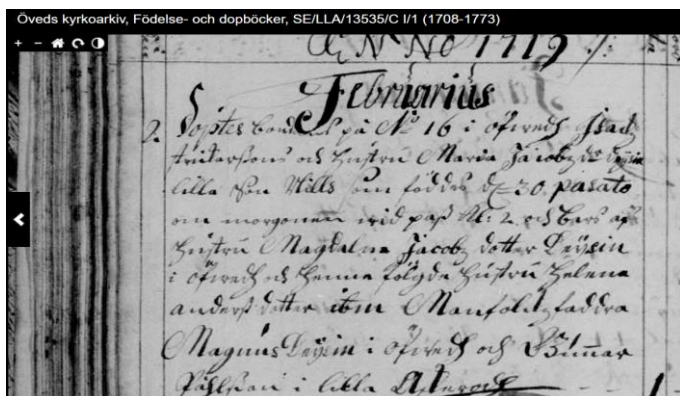 Öveds kyrkoarkiv, Födelse- och dopböcker, SE/LLA/13535/C I/1 (1708-1773)
ANNO 1719
Februarius
2. Döptes på No 16 i Öfwedh
och hustru Maria Jacobz
lilla Son Nills som föddes d 30 pasato
om morgonen wid pass kl: 2 och bars af
hustru Magdalna Jacobz dotter Deysin
i Öfwedh och henne fölgde hustru Helena
anderss dotter ibm Manfolk faddra
Magnus Deysin i Öfwedh och Gunnar
Påhlsson i lilla